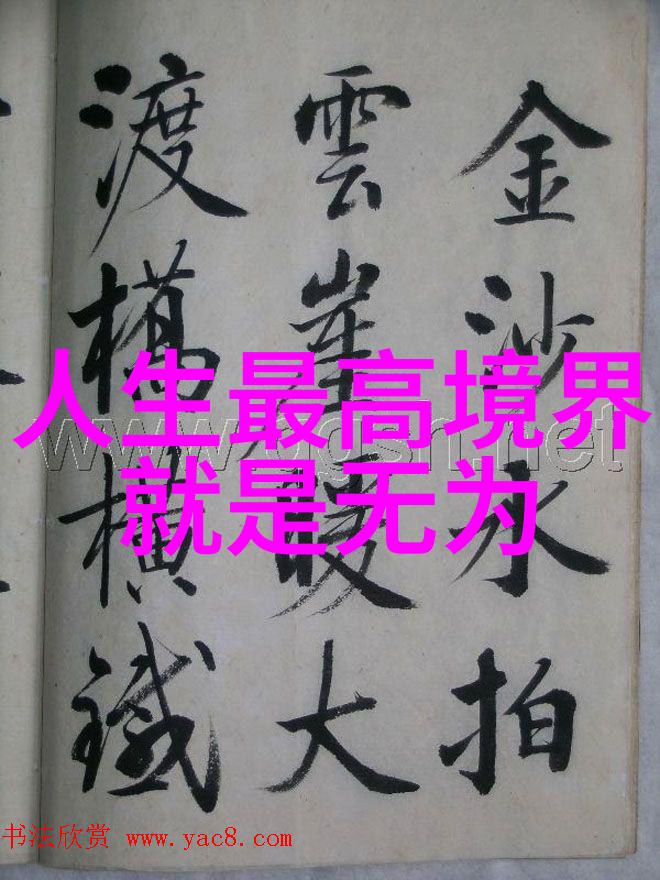 金沙水拍
雲崖暖大
渡橋横鐵
人生最高境界
就是无为
书法欣赏 www.yac8.com